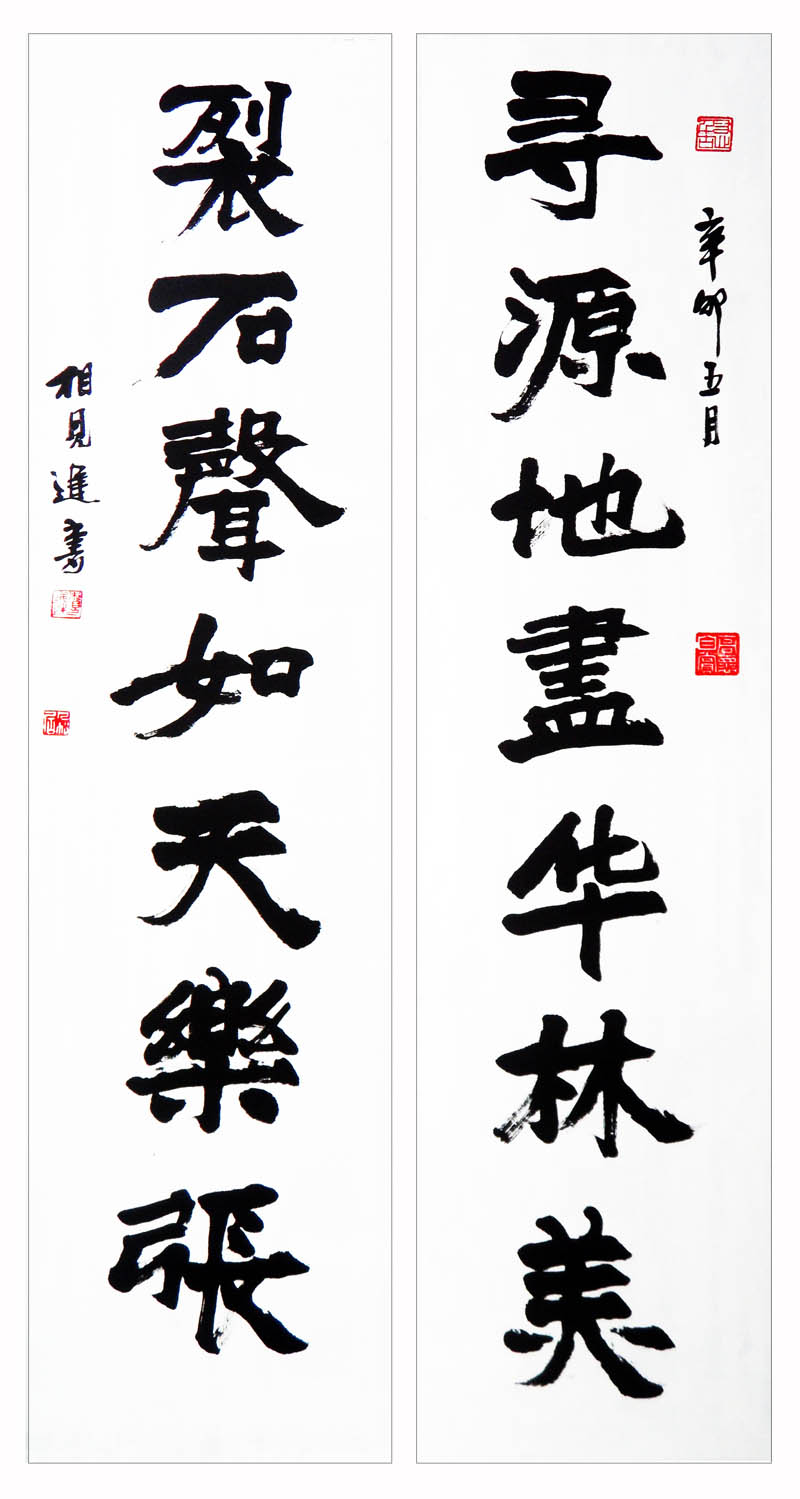 辛卯五月
寻源地盡华林美
裂石聲如天樂張
相見進書